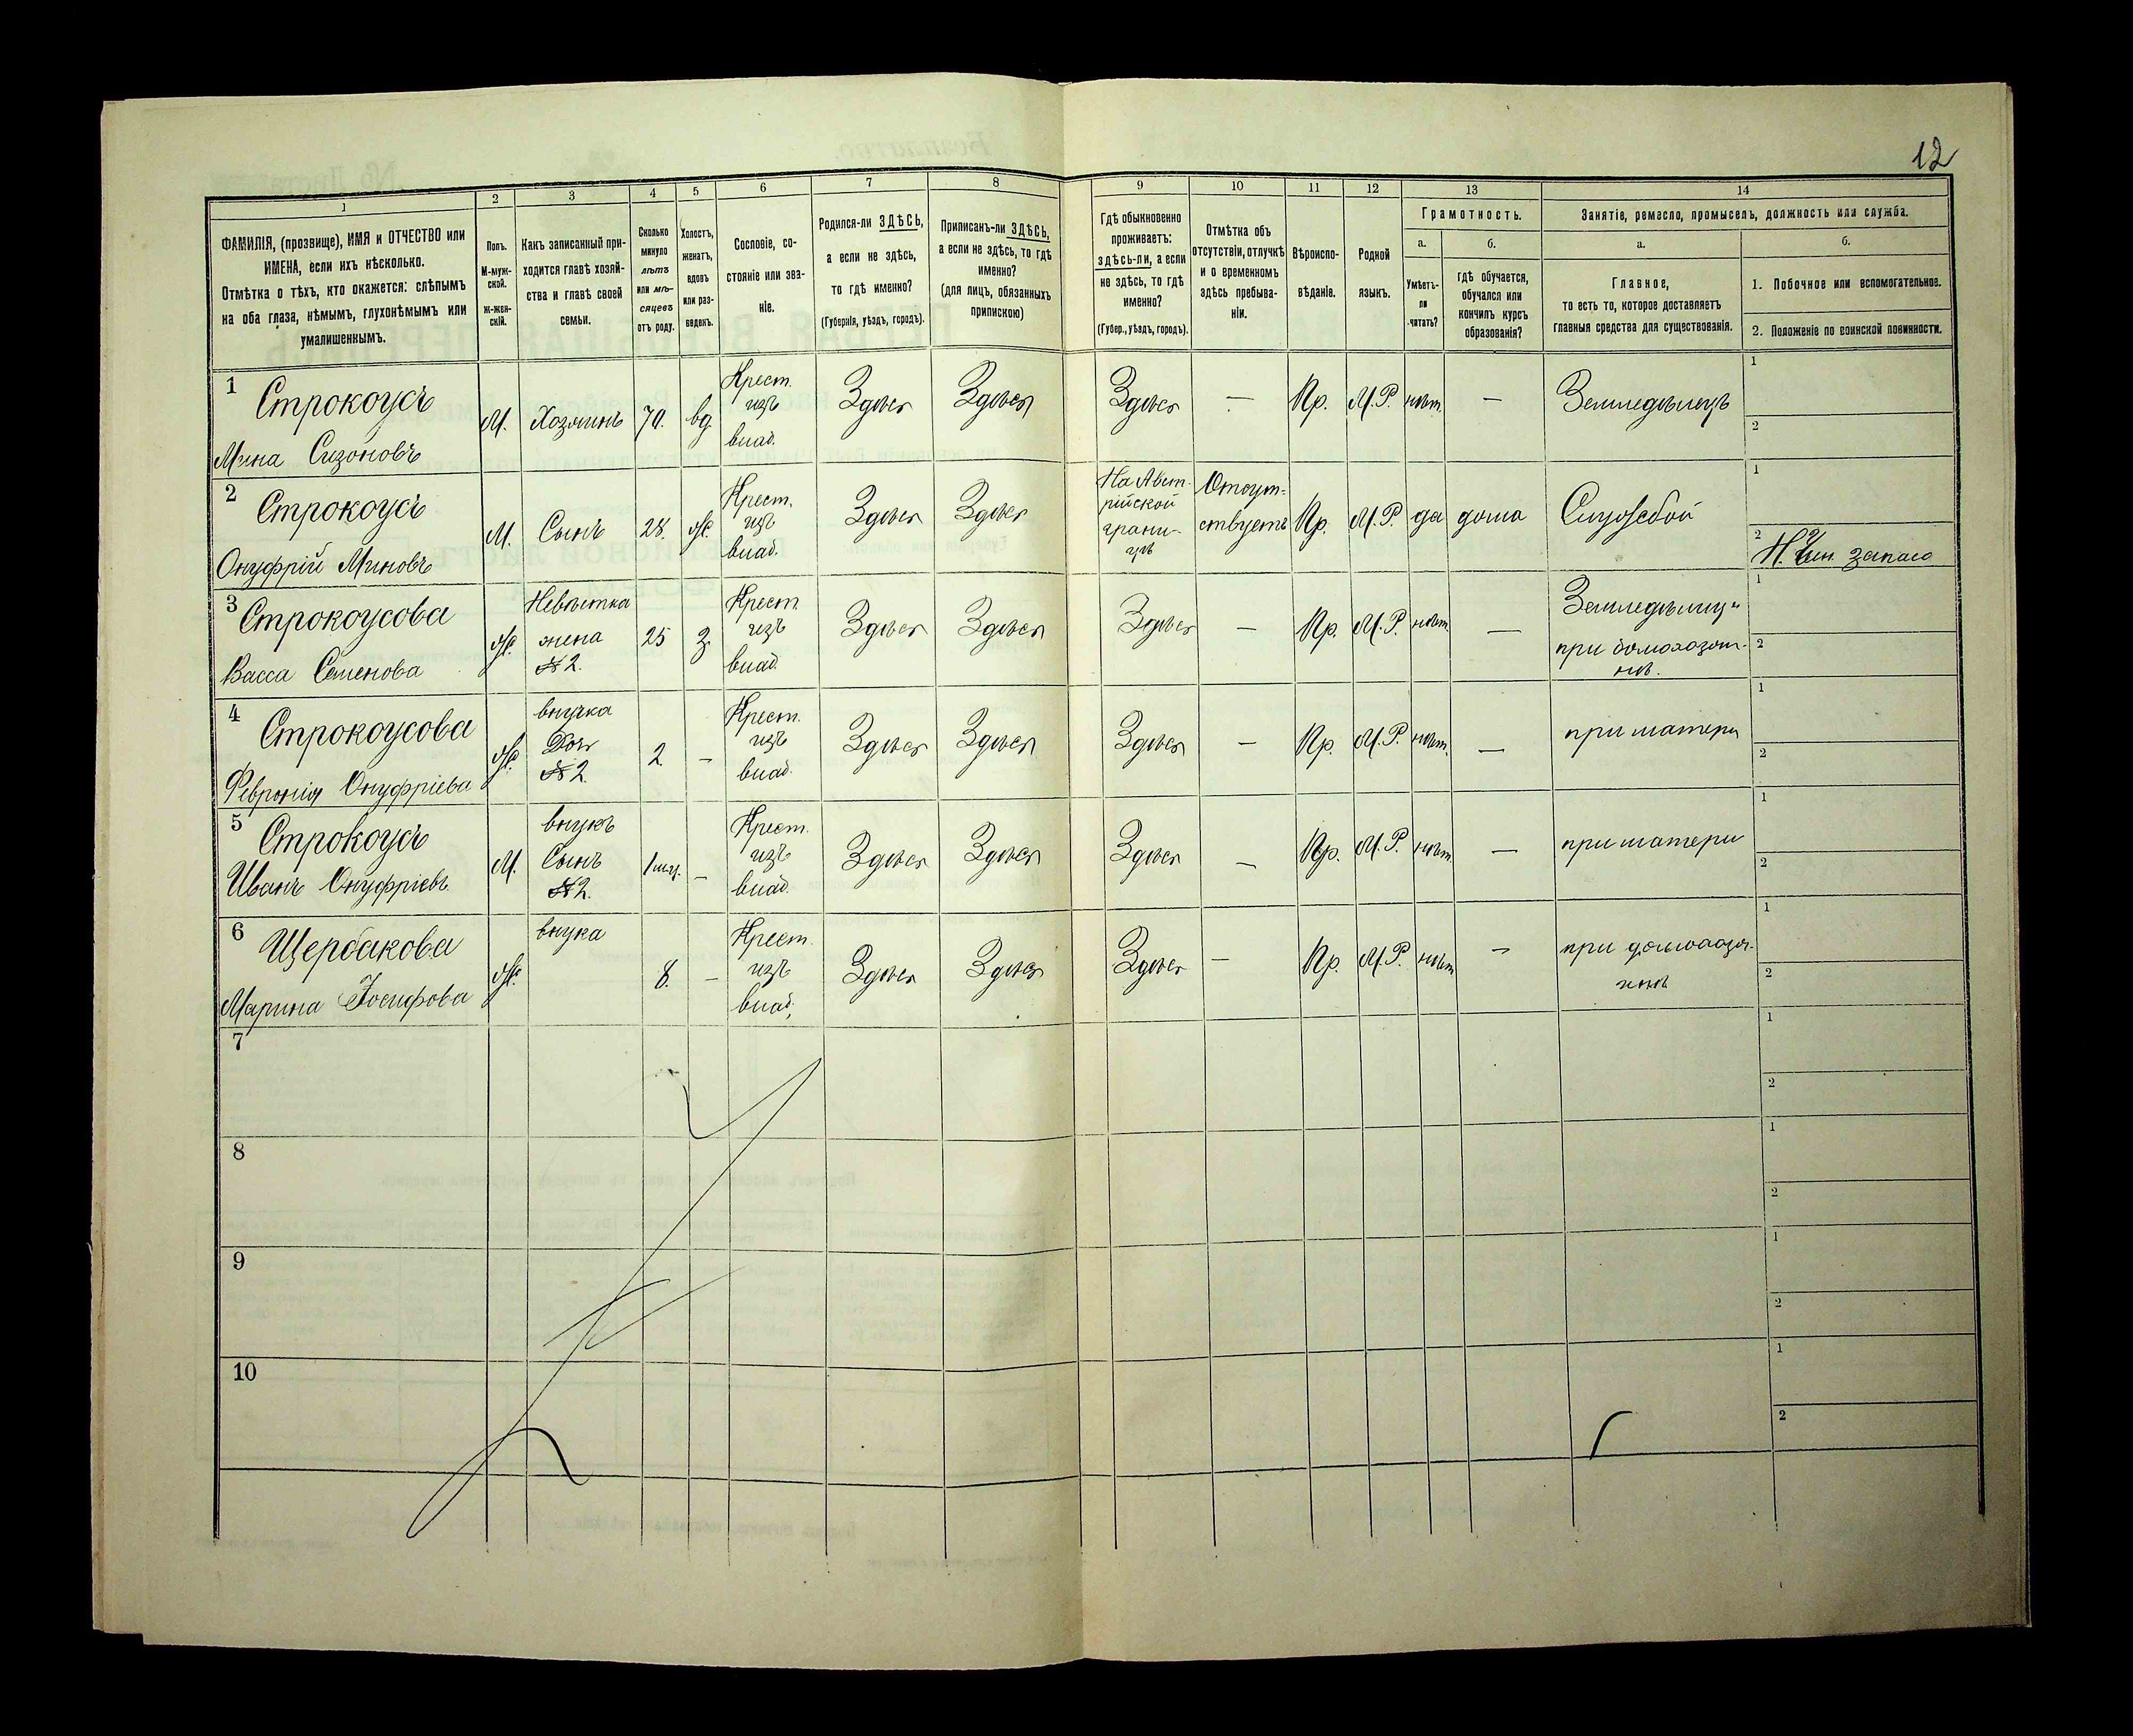 12
1
2
3
4
5
6
7
8
9
10
11
12
13
14
ФАМИЛІЯ, (прозвище), ИМЯ и ОТЧЕСТВО или
ИМЕНА, если ихъ нѣсколько.
Отмѣтка о тѣхъ, кто окажется: слѣпымъ
на оба глаза, нѣмымъ, глухонѣмымъ или
умалишеннымъ.
Полъ.
М-муж-
ской.
Ж-жен-
скій.
Какъ записанный при-
ходится главѣ хозяй-
ства и главѣ своей
семьи.
Сколько
минуло
лѣтъ
или мѣ-
сяцевъ
отъ роду.
Холостъ,
женатъ,
вдовъ
или раз-
веденъ.
Сословіе, со-
стояніе или зва-
ніе.
Родился-ли ЗДѢСЬ,
а если не здѣсь,
то гдѣ именно?
(Губернія, уѣздъ, городъ).
Приписанъ-ли ЗДѢСЬ,
а если не здѣсь, то гдѣ
именно?
(для лицъ, обязанныхъ
припискою)
Гдѣ обыкновенно
проживаетъ:
здѣсь-ли, а если
не здѣсь, то гдѣ
именно?
(Губер., уѣздъ, городъ).
Отмѣтка объ
отсутствіи, отлучкѣ
и о временномъ
здѣсь пребыва-
ніи.
Вѣроиспо-
вѣданіе.
Родной
языкъ.
Грамотность.
а.
Умѣетъ-
ли
читать?
б.
гдѣ обучается,
обучался или
кончилъ курсъ
образованія?
Занятіе, ремесло, промыселъ, должность или служба.
а.
Главное,
то есть то, которое доставляетъ
главныя средства для существованія.
б.
1. Побочное или вспомогательное.
2. Положеніе по воинской повинности.
1
Строкоусъ
Мина Сизоновъ
М.
Хозяинъ
70.
вд.
Крест.
изъ
влад.
Здѣсь
Здѣсь
Здѣсь
—
Пр.
М.Р.
нѣт.
—
Земледѣлецъ
1
2
2
Строкоусъ
Онуфрій Миновъ
М.
Сынъ
28.
ж.
Крест.
изъ
влад.
Здѣсь
Здѣсь
На Авст-
рійской
грани-
цѣ
Отсут=
ствуетъ
Пр.
М.Р.
да
дома
Службой
1
2
Н. чин запаса
3
Строкоусова
Васса Семенова
Ж.
Невѣстка
жена
№2.
25
з.
Крест.
изъ
влад.
Здѣсь
Здѣсь
Здѣсь
—
Пр.
М.Р.
нѣт.
—
при домохозяи-
нѣ.
1
2
4
Строкоусова
Февронія Онуфріева
Ж.
внучка
Дочь
№2.
2.
—
Крест.
изъ
влад.
Здѣсь
Здѣсь
Здѣсь
—
Пр.
М.Р.
нѣт.
—
при матери
1
2
5
Строкоусъ
Иванъ Онуфріевъ
М.
внукъ
Сынъ
№2.
1 м.
—
Крест.
изъ
влад.
Здѣсь
Здѣсь
Здѣсь
—
Пр.
М.Р.
нѣт.
—
при матери
1
2
6
Щербакова
Марина Іосифова
Ж.
внука
8.
—
Крест.
изъ
влад.
Здѣсь
Здѣсь
Здѣсь
—
Пр.
М.Р.
нѣт
—
при домохозя-
инѣ
1
2
7
1
2
8
1
2
9
1
2
10
1
2